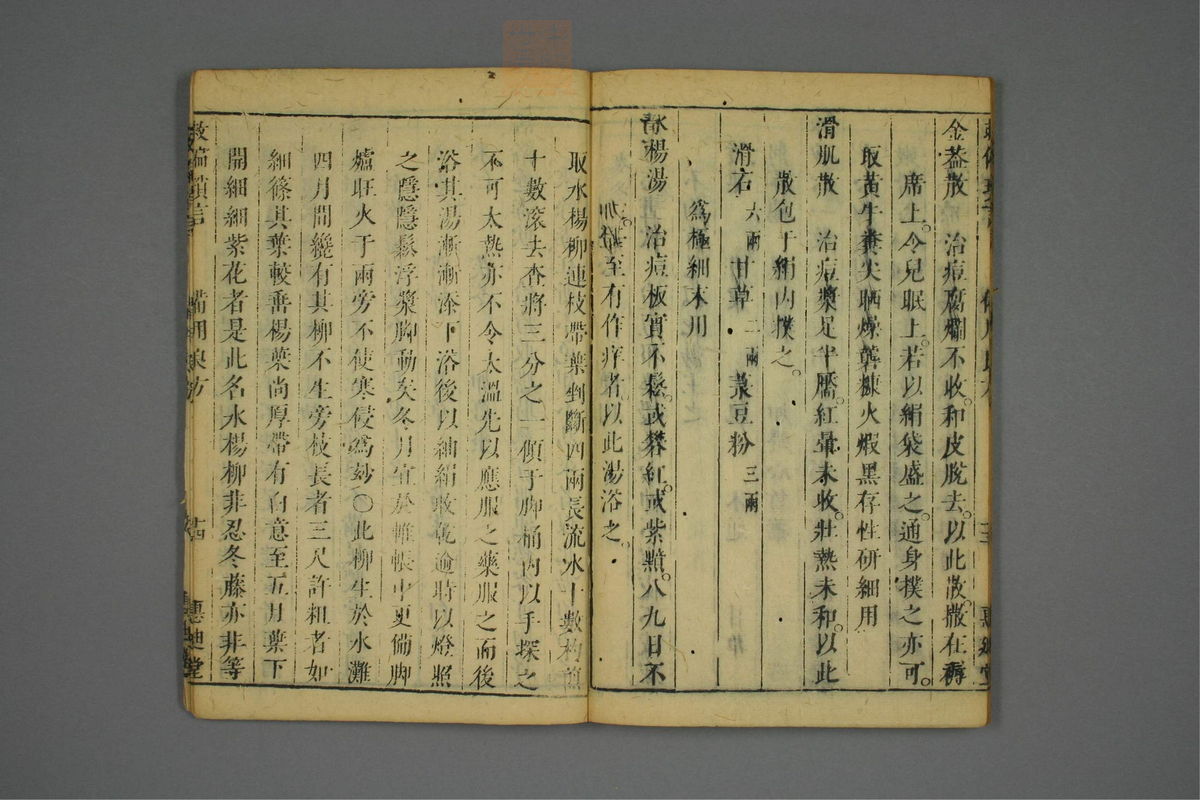 金益散 治痘腐爛不收和皮脫去。以此散撒在褥
席上。今兒眠上。若以絹袋盛之。通身撲之亦可。
取黃牛糞尖晒燥礱糠火煆黑存性研細用
滑肌散 治痘漿足半靨。紅暈未收。壯熱未和。以此
散包于絹內撲之。
滑石六兩甘草二兩菉豆粉三兩
爲極細末用
水楊湯 治痘板實不鬆。或礬紅或紫黯。八九日不
加漿至有作痒者以此湯浴之。
取水楊柳連枝帶葉剉斷四兩長流水十數杓煎
十數滚去査將三分之一傾于脚桶內以手探之
不可太熱亦不令太溫先以應服之藥服之而後
浴其湯漸漸添下浴後以紬絹收乾逾時以燈照
之隱隱鬆浮漿脚動矣冬月宜於帷帳中更備脚
爐旺火于兩旁不使寒侵爲妙○此柳生於水灘
四月間纔有其柳不生旁枝長者三尺許粗者如
細篠其葉較垂楊葉尚厚帶有白意至五月葉下
開細細紫花者是此名水楊柳非忍冬藤亦非等
救偏瑣言 備用良方 十四 惠迪堂